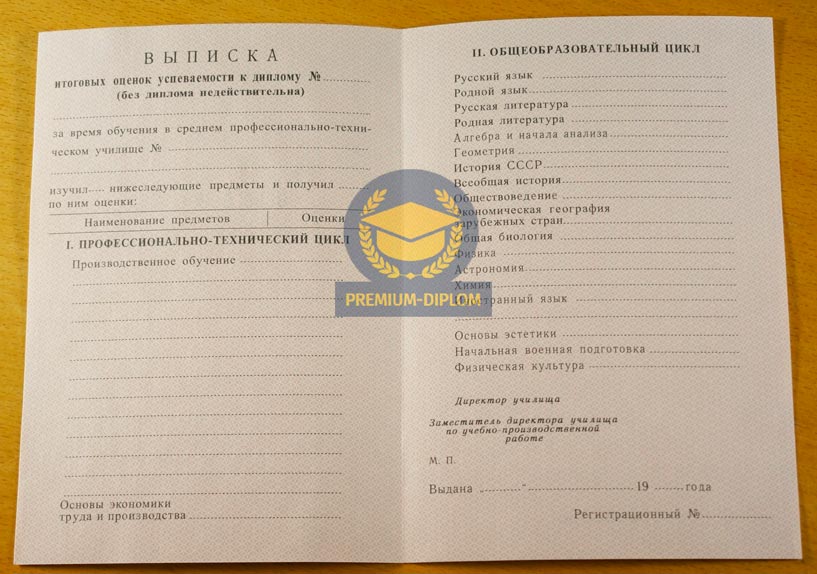 ВЫПИСКА
итоговых оценок успеваемости к диплому №
(без диплома недействительна)
за время обучения в среднем профессионально-техни-
ческом училище №
изучил нижеследующие предметы и получил
по ним оценки:
Наименование предметов Оценки
I. ПРОФЕССИОНАЛЬНО-ТЕХНИЧЕСКИЙ ЦИКЛ
Производственное обучение
Основы экономики
труда и производства
II. ОБЩЕОБРАЗОВАТЕЛЬНЫЙ ЦИКЛ
Русский язык
Родной язык
Русская литература
Родная литература
Алгебра и начала анализа
Геометрия
История СССР
Всеобщая история
Обществоведение
Экономическая география
зарубежных стран
Общая биология
Физика
Астрономия
Химия
Иностранный язык
Основы эстетики
Начальная военная подготовка
Физическая культура
Директор училища
Заместитель директора училища
по учебно-производственной
работе
М. П.
Выдана „ “ 19 года
Регистрационный №
PREMIUM-DIPLOM